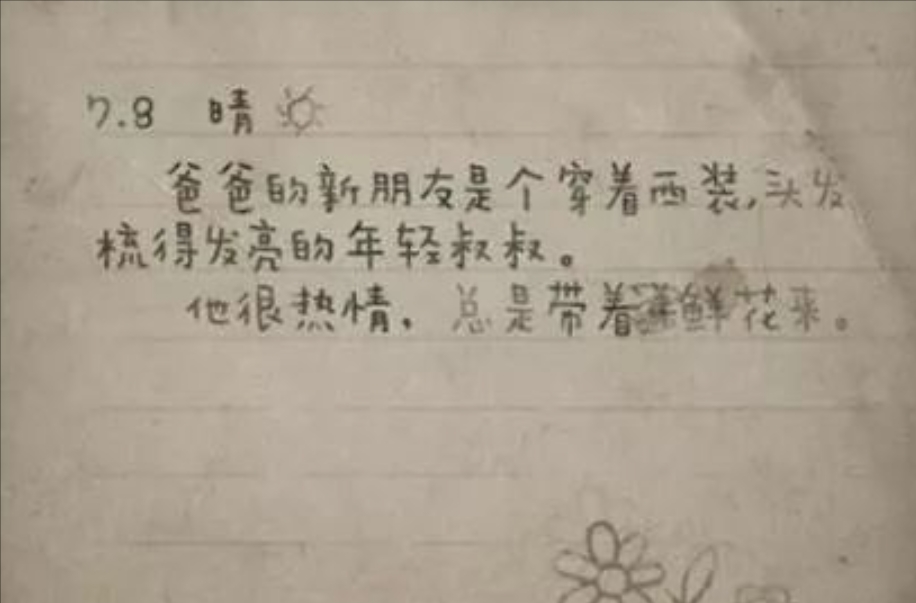 7.8 晴
爸爸的新朋友是个穿着西装,头发
梳得发亮的年轻叔叔。
他很热情,总是带着鲜花来。